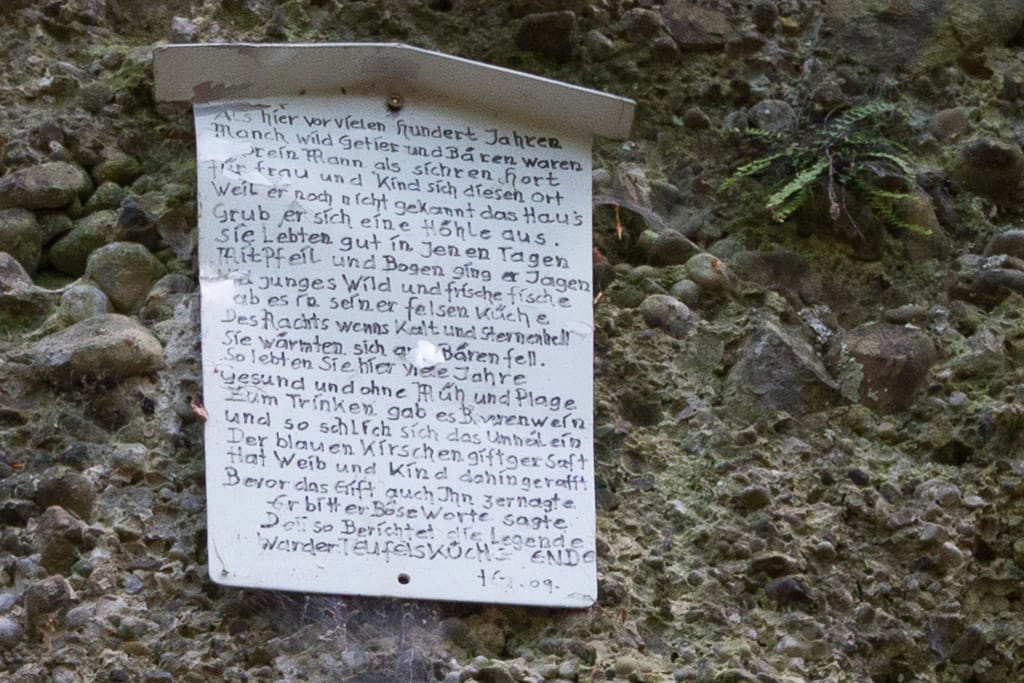 Als hier vor vielen hundert Jahren
Manch wild Getier und Bären waren
ein Mann als sichren hort
für Frau und Kind sich diesen Ort
Weil er noch nicht gekannt das Hau's
Grub er sich eine Höhle aus.
Sie Lebten gut in Jenen Tagen
Mit Pfeil und Bogen ging er Jagen
junges Wild und frische fische
ab es in seiner felsen Küche
Des Nachts wenns Kalt und sternenhell
Sie wärmten sich Bärenfell.
So lebten Sie hier viele Jahre
Gesund und ohne Müh und Plage
Zum Trinken gab es Beerenwein
und so schlich sich das Unheil ein
Der blauen Kirschen giftger Saft
Hat Weib und Kind dahingerafft
Bevor das Gift auch Ihn zernagte
Er bitter Böse Worte sagte
so Berichtet die Legende
War der TEUFELSKÜCHE ENDE
09.